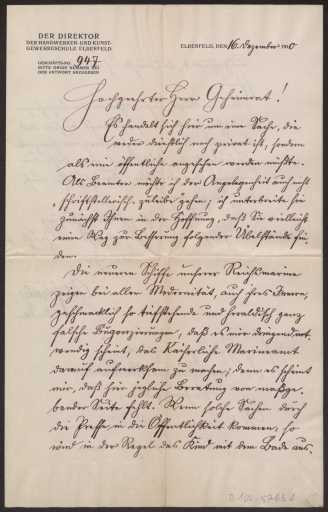 DER DIREKTOR
DER HANDWERKER- UND KUNST-
GEWERBESCHULE ELBERFELD.
GESCHÄFTS-NO. 947
BITTE DIESE NUMMER BEI
DER ANTWORT ANZUGEBEN
ELBERFELD, DEN 16. Dezember 1910
Hochgeehrter Herr Geheimrat!
Es handelt sich hier um eine Sache, die
weder dienstlich noch privat ist, sondern
als eine öffentliche angesehen werden möchte.
Als Beamter möchte ich der Angelegenheit auch nicht
"schriftstellerisch" zuleibe gehen, ich unterbreite sie
zunächst Ihnen in der Hoffnung, daß Sie vielleicht
einen Weg zur Besserung folgender Übelstände fin-
den.
Die neueren Schiffe unserer Reichsmarine
zeigen bei aller Modernität, auch ihres Innern,
geschmacklich so tiefstehende und heraldisch ganz
falsche Bugverzierungen, daß es mir dringend not-
wendig scheint, das Kaiserliche Marineamt
darauf aufmerksam zu machen; denn es scheint
mir, daß hier jegliche Beratung von maßge-
bender Seite fehlt. Wenn solche Sachen durch
die Presse in die Öffentlichkeit kommen, so
wird in der Regel das Kind mit dem Bade aus-